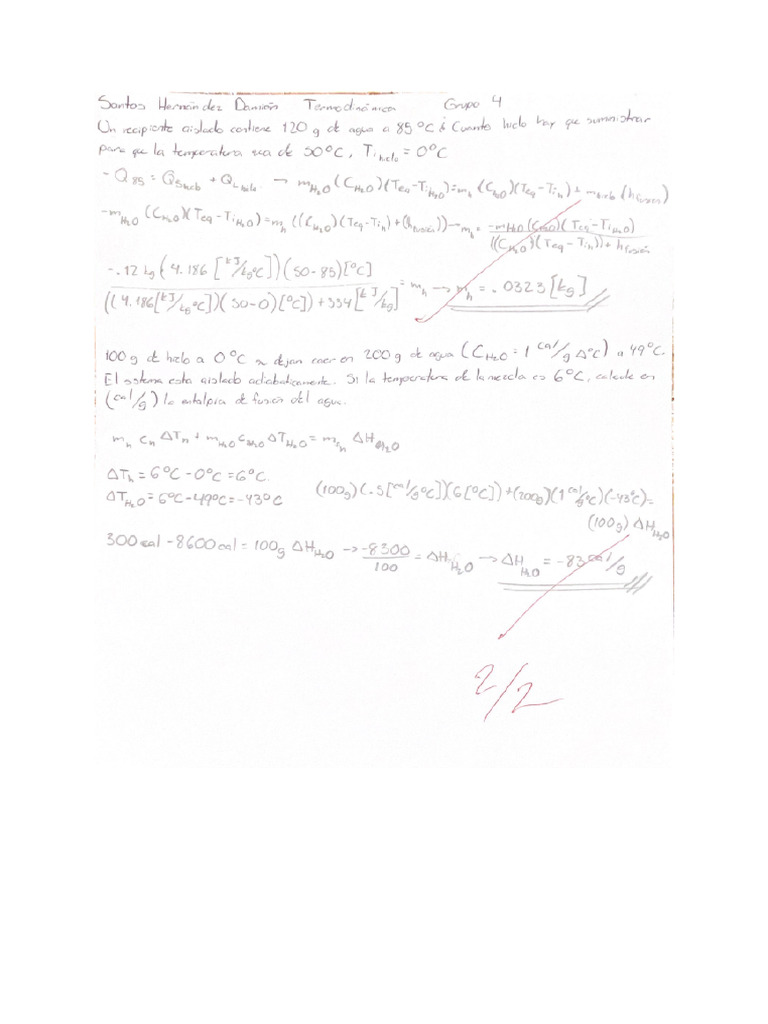 Santos Hernández Damián Termodinámica Grupo 4
Un recipiente aislado contiene 120 g de agua a 85°C ¿Cuanto hielo hay que suministrar
para que la temperatura sea de 50°C, Ti hielo = 0°C
-Q85 = QS hielo + QL hielo → mH2O (CH2O)(Teq-TiH2O) = mh (CH2O)(Teq-Tih) + mhielo (hfusión)
-mH2O (CH2O)(Teq-TiH2O) = mh ((CH2O)(Teq-Tih) + (hfusión)) → mh = -mH2O (CH2O)(Teq-TiH2O) / ((CH2O)(Teq-Tih)) + hfusión
-.12 kg (4.186 [kJ/kg°C])(50-85)[°C] / ((4.186[kJ/kg°C])(50-0)[°C]) + 334 [kJ/kg] = mh → mh = .0323 [kg]
100 g de hielo a 0°C se dejan caer en 200 g de agua (CH2O = 1 cal/g Δ°C) a 49°C.
El sistema esta aislado adiabaticamente. Si la temperatura de la mezcla es 6°C, calcule en
(cal/g) la entalpia de fusión del agua.
mh ch ΔTh + mH2O cH2O ΔTH2O = mh ΔHH2O
ΔTh = 6°C - 0°C = 6°C.
ΔTH2O = 6°C - 49°C = -43°C (100g)(.5[cal/g°C])(6[°C]) + (200g)(1 cal/g°C)(-43°C) =
(100g) ΔHH2O
300 cal - 8600 cal = 100g ΔHH2O → -8300/100 = ΔHH2O → ΔHH2O = -83 cal/g
2/2